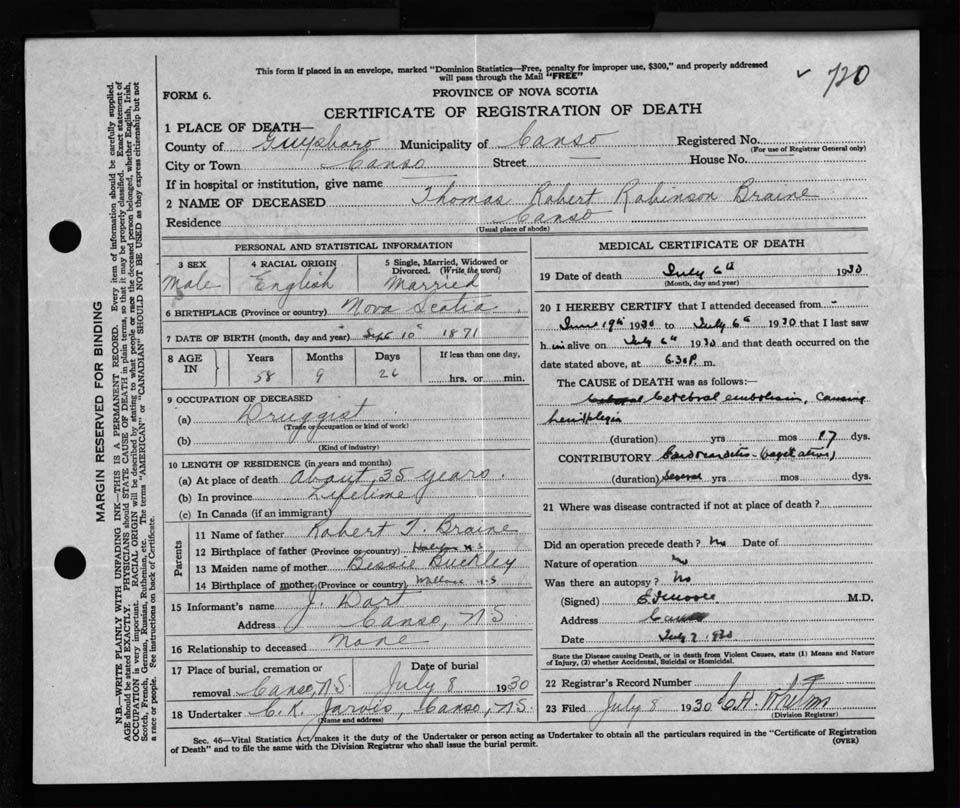 This form if placed in an envelope, marked "Dominion Statistics—Free, penalty for improper use, $300," and properly addressed
will pass through the Mail "FREE"
✓ 720
FORM 6.
PROVINCE OF NOVA SCOTIA
CERTIFICATE OF REGISTRATION OF DEATH
1 PLACE OF DEATH—
County of Guysboro Municipality of Canso Registered No.
(For use of Registrar General only)
City or Town Canso Street — House No.
If in hospital or institution, give name
2 NAME OF DECEASED Thomas Robert Robinson Braine
Residence Canso
(Usual place of abode)
PERSONAL AND STATISTICAL INFORMATION
3 SEX 4 RACIAL ORIGIN 5 Single, Married, Widowed or
Divorced. (Write the word)
Male English Married
6 BIRTHPLACE (Province or country) Nova Scotia
7 DATE OF BIRTH (month, day and year) Sept 10 1871
8 AGE IN Years Months Days If less than one day,
58 9 26 hrs. or min.
9 OCCUPATION OF DECEASED
(a) Druggist
(Trade or occupation or kind of work)
(b)
(Kind of industry)
10 LENGTH OF RESIDENCE (in years and months)
(a) At place of death About 35 years.
(b) In province Lifetime
(c) In Canada (if an immigrant)
Parents
11 Name of father Robert T. Braine
12 Birthplace of father (Province or country) Halifax N S
13 Maiden name of mother Bessie Buckley
14 Birthplace of mother (Province or country) Wallace N.S
15 Informant's name J. Dort
Address Canso, NS
16 Relationship to deceased None
17 Place of burial, cremation or Date of burial
removal Canso, N.S. July 8 1930
18 Undertaker C. K. Jarvis, Canso, NS.
(Name and address)
MEDICAL CERTIFICATE OF DEATH
19 Date of death July 6th 1930
(Month, day and year)
20 I HEREBY CERTIFY that I attended deceased from
June 19th 1930 to July 6th 1930 that I last saw
h im alive on July 6th 1930 and that death occurred on the
date stated above, at 6.30 P. m.
The CAUSE OF DEATH was as follows:—
Cerebral embolism, causing
hemiplegia
(duration) yrs mos 17 dys.
CONTRIBUTORY
(duration) Several yrs mos dys.
21 Where was disease contracted if not at place of death?
Did an operation precede death? No Date of
Nature of operation
Was there an autopsy? No
(Signed) M.D.
Address Canso
Date July 7 1930
State the Disease causing Death, or in death from Violent Causes, state (1) Means and Nature
of Injury, (2) whether Accidental, Suicidal or Homicidal.
22 Registrar's Record Number
23 Filed July 8 1930
(Division Registrar)
Sec. 46—Vital Statistics Act makes it the duty of the Undertaker or person acting as Undertaker to obtain all the particulars required in the "Certificate of Registration
of Death" and to file the same with the Division Registrar who shall issue the burial permit.
(OVER)
MARGIN RESERVED FOR BINDING
N.B.—WRITE PLAINLY WITH UNFADING INK—THIS IS A PERMANENT RECORD. Every item of information should be carefully supplied.
AGE should be stated EXACTLY. PHYSICIANS should STATE CAUSE OF DEATH in plain terms, so that it may be properly classified. Exact statement of
OCCUPATION is very important. RACIAL ORIGIN will be described by stating to what people or race the deceased person belonged, whether English, Irish,
Scotch, French, German, Russian, Ruthenian, etc. The terms "AMERICAN" or "CANADIAN" SHOULD NOT BE USED as they express citizenship but not
a race or people. See instructions on back of Certificate.